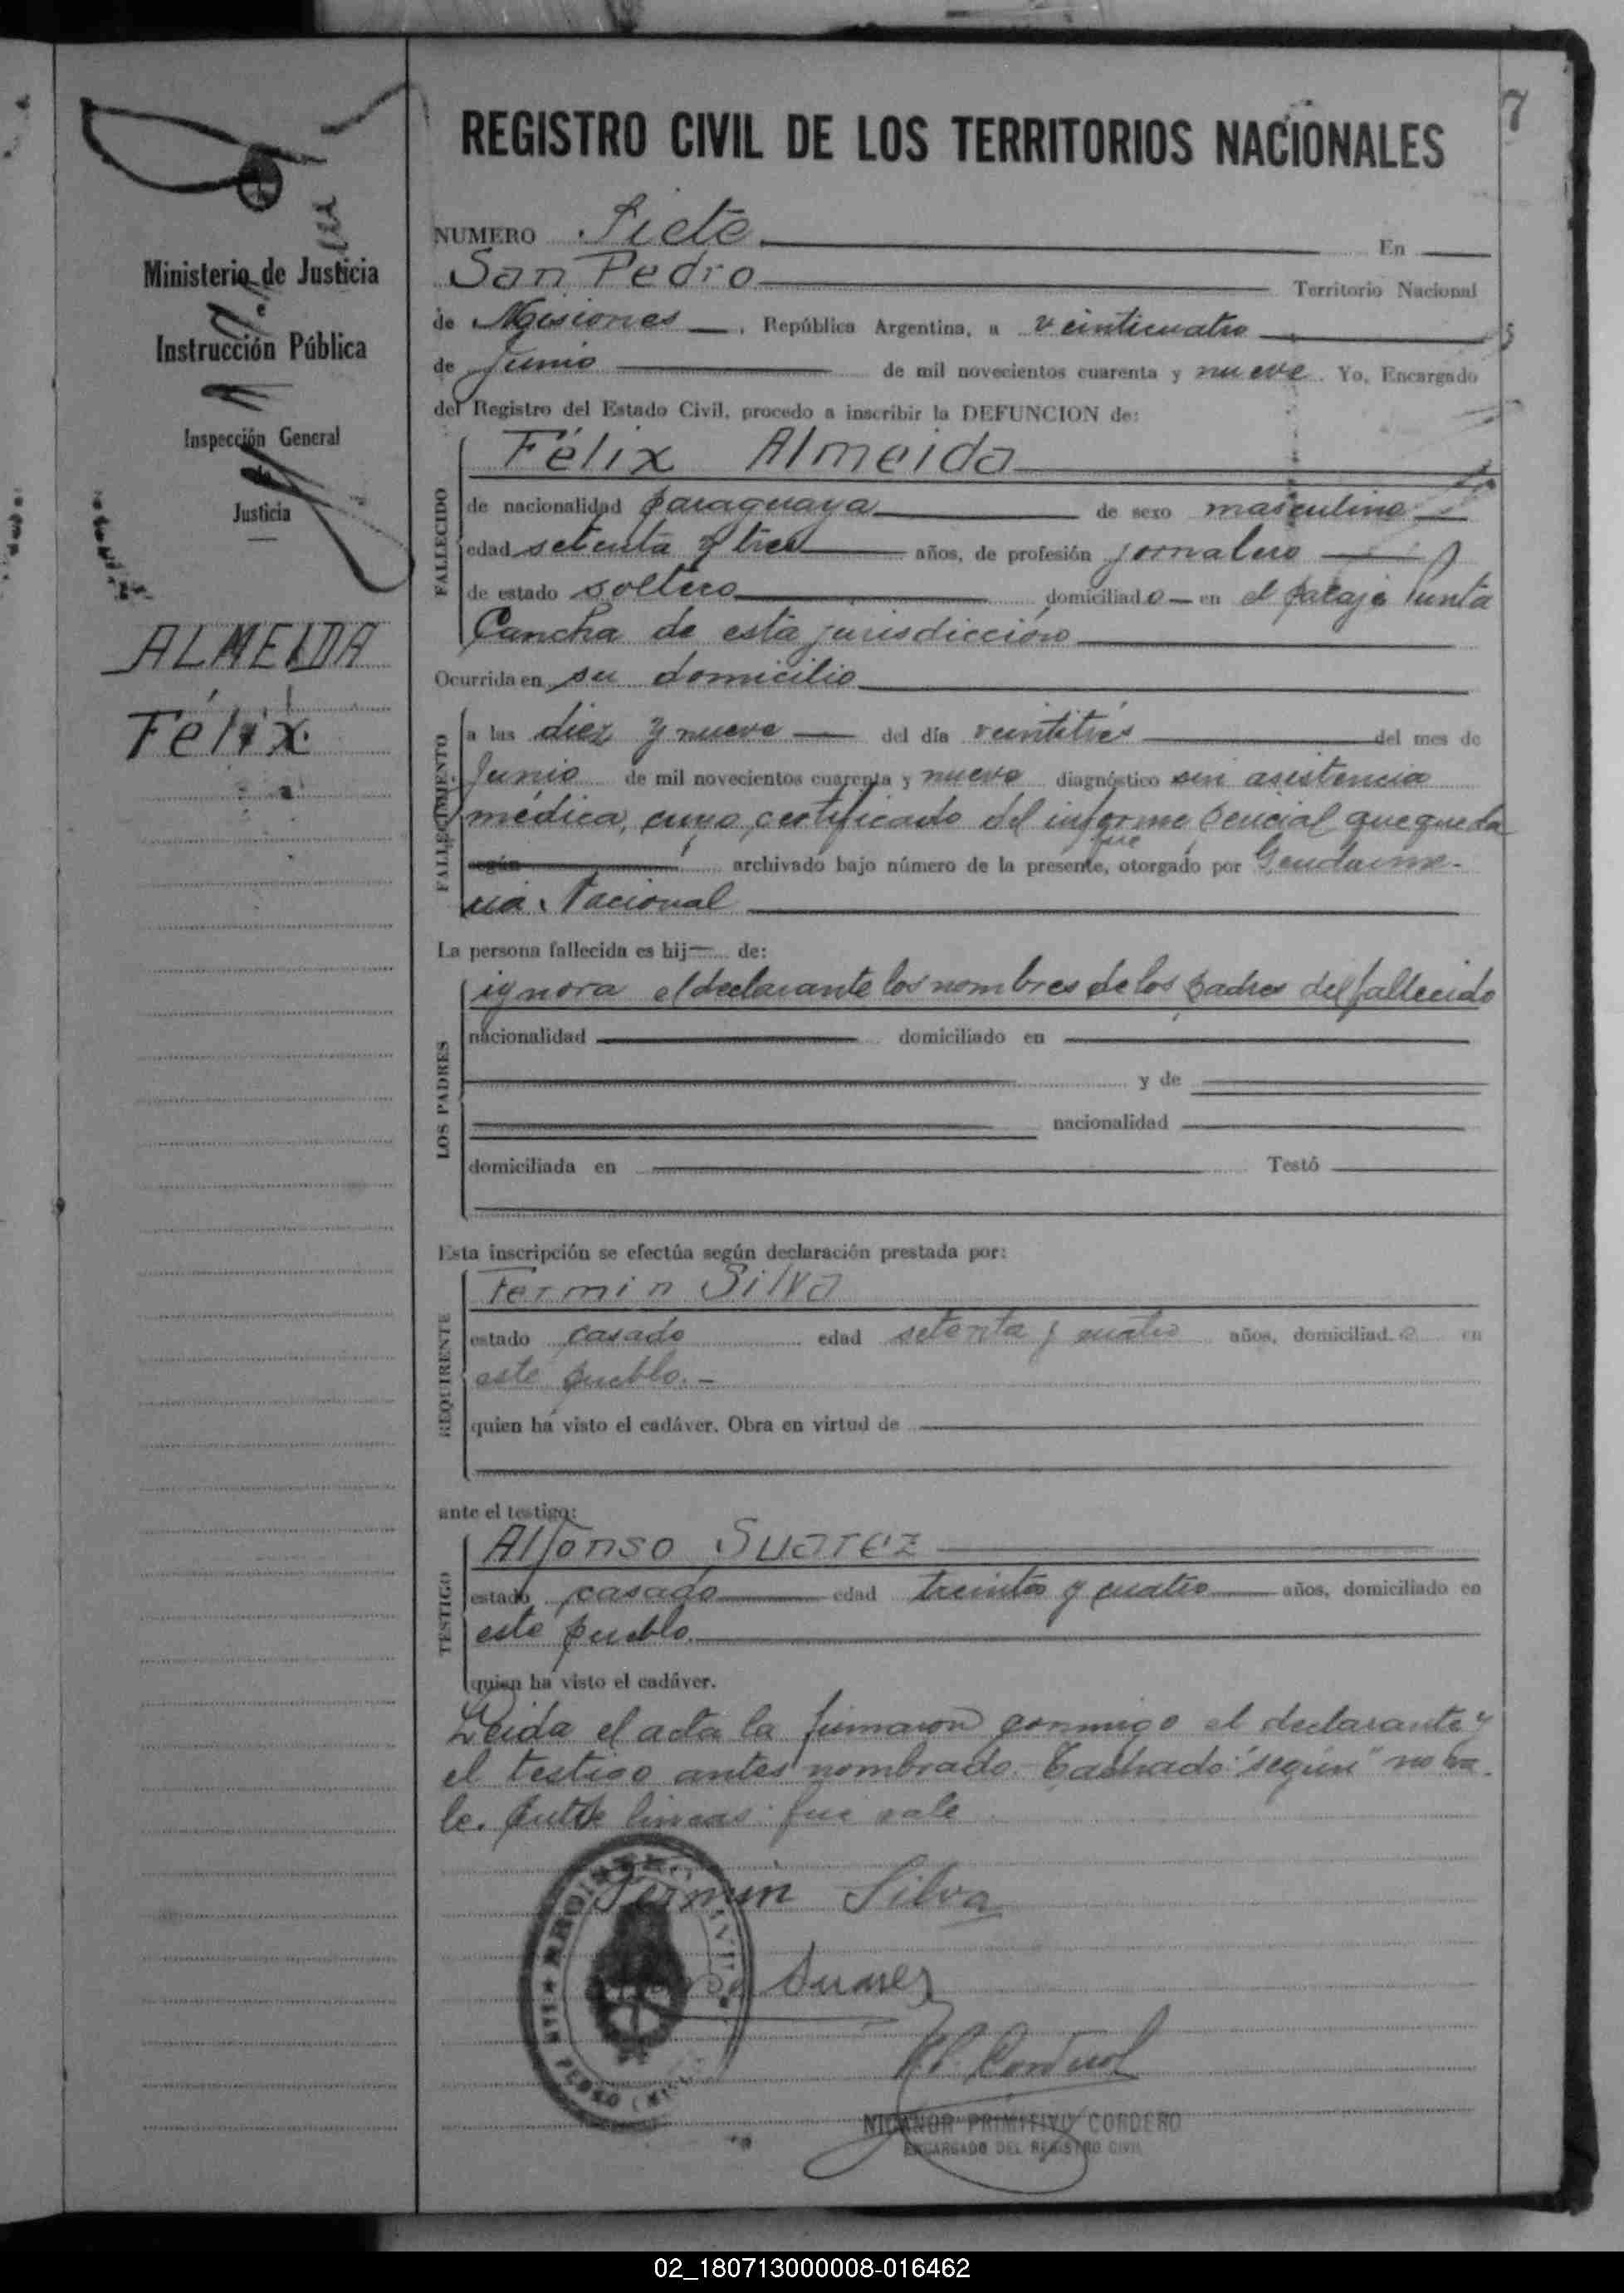 7
REGISTRO CIVIL DE LOS TERRITORIOS NACIONALES
Ministerio de Justicia
Instrucción Pública
Inspección General
de
Justicia
ALMEIDA
Félix
NUMERO Siete En
San Pedro Territorio Nacional
de Misiones, República Argentina, a veinticuatro
de Junio de mil novecientos cuarenta y nueve. Yo, Encargado
del Registro del Estado Civil, procedo a inscribir la DEFUNCION de:
FALLECIDO
Félix Almeida
de nacionalidad paraguaya de sexo masculino
edad setenta y tres años, de profesión jornalero
de estado soltero domiciliado en el paraje Punta
Cancha de esta jurisdicción
Ocurrida en su domicilio
FALLECIMIENTO
a las diez y nueve del día veintitrés del mes de
Junio de mil novecientos cuarenta y nueve diagnóstico sin asistencia
médica, cuyo certificado del informe pericial que queda
fue
según archivado bajo número de la presente, otorgado por Gendarme-
ria Nacional
La persona fallecida es hij de:
LOS PADRES
ignora el declarante los nombres de los padres del fallecido
nacionalidad domiciliado en
y de
nacionalidad
domiciliada en Testó
Esta inscripción se efectúa según declaración prestada por:
REQUIRENTE
Fermin Silva
estado casado edad setenta y cuatro años, domiciliado en
este pueblo.-
quien ha visto el cadáver. Obra en virtud de
ante el testigo:
TESTIGO
Alfonso Suarez
estado casado edad treinta y cuatro años, domiciliado en
este pueblo.
quien ha visto el cadáver.
Leida el acta la firmaron conmigo el declarante y
el testigo antes nombrado. Tachado: "según" no va-
le. Entre lineas: fue vale
Fermin Silva
Suarez
N.P. Cordero
NICANOR PRIMITIVO CORDERO
ENCARGADO DEL REGISTRO CIVIL
02_180713000008-016462